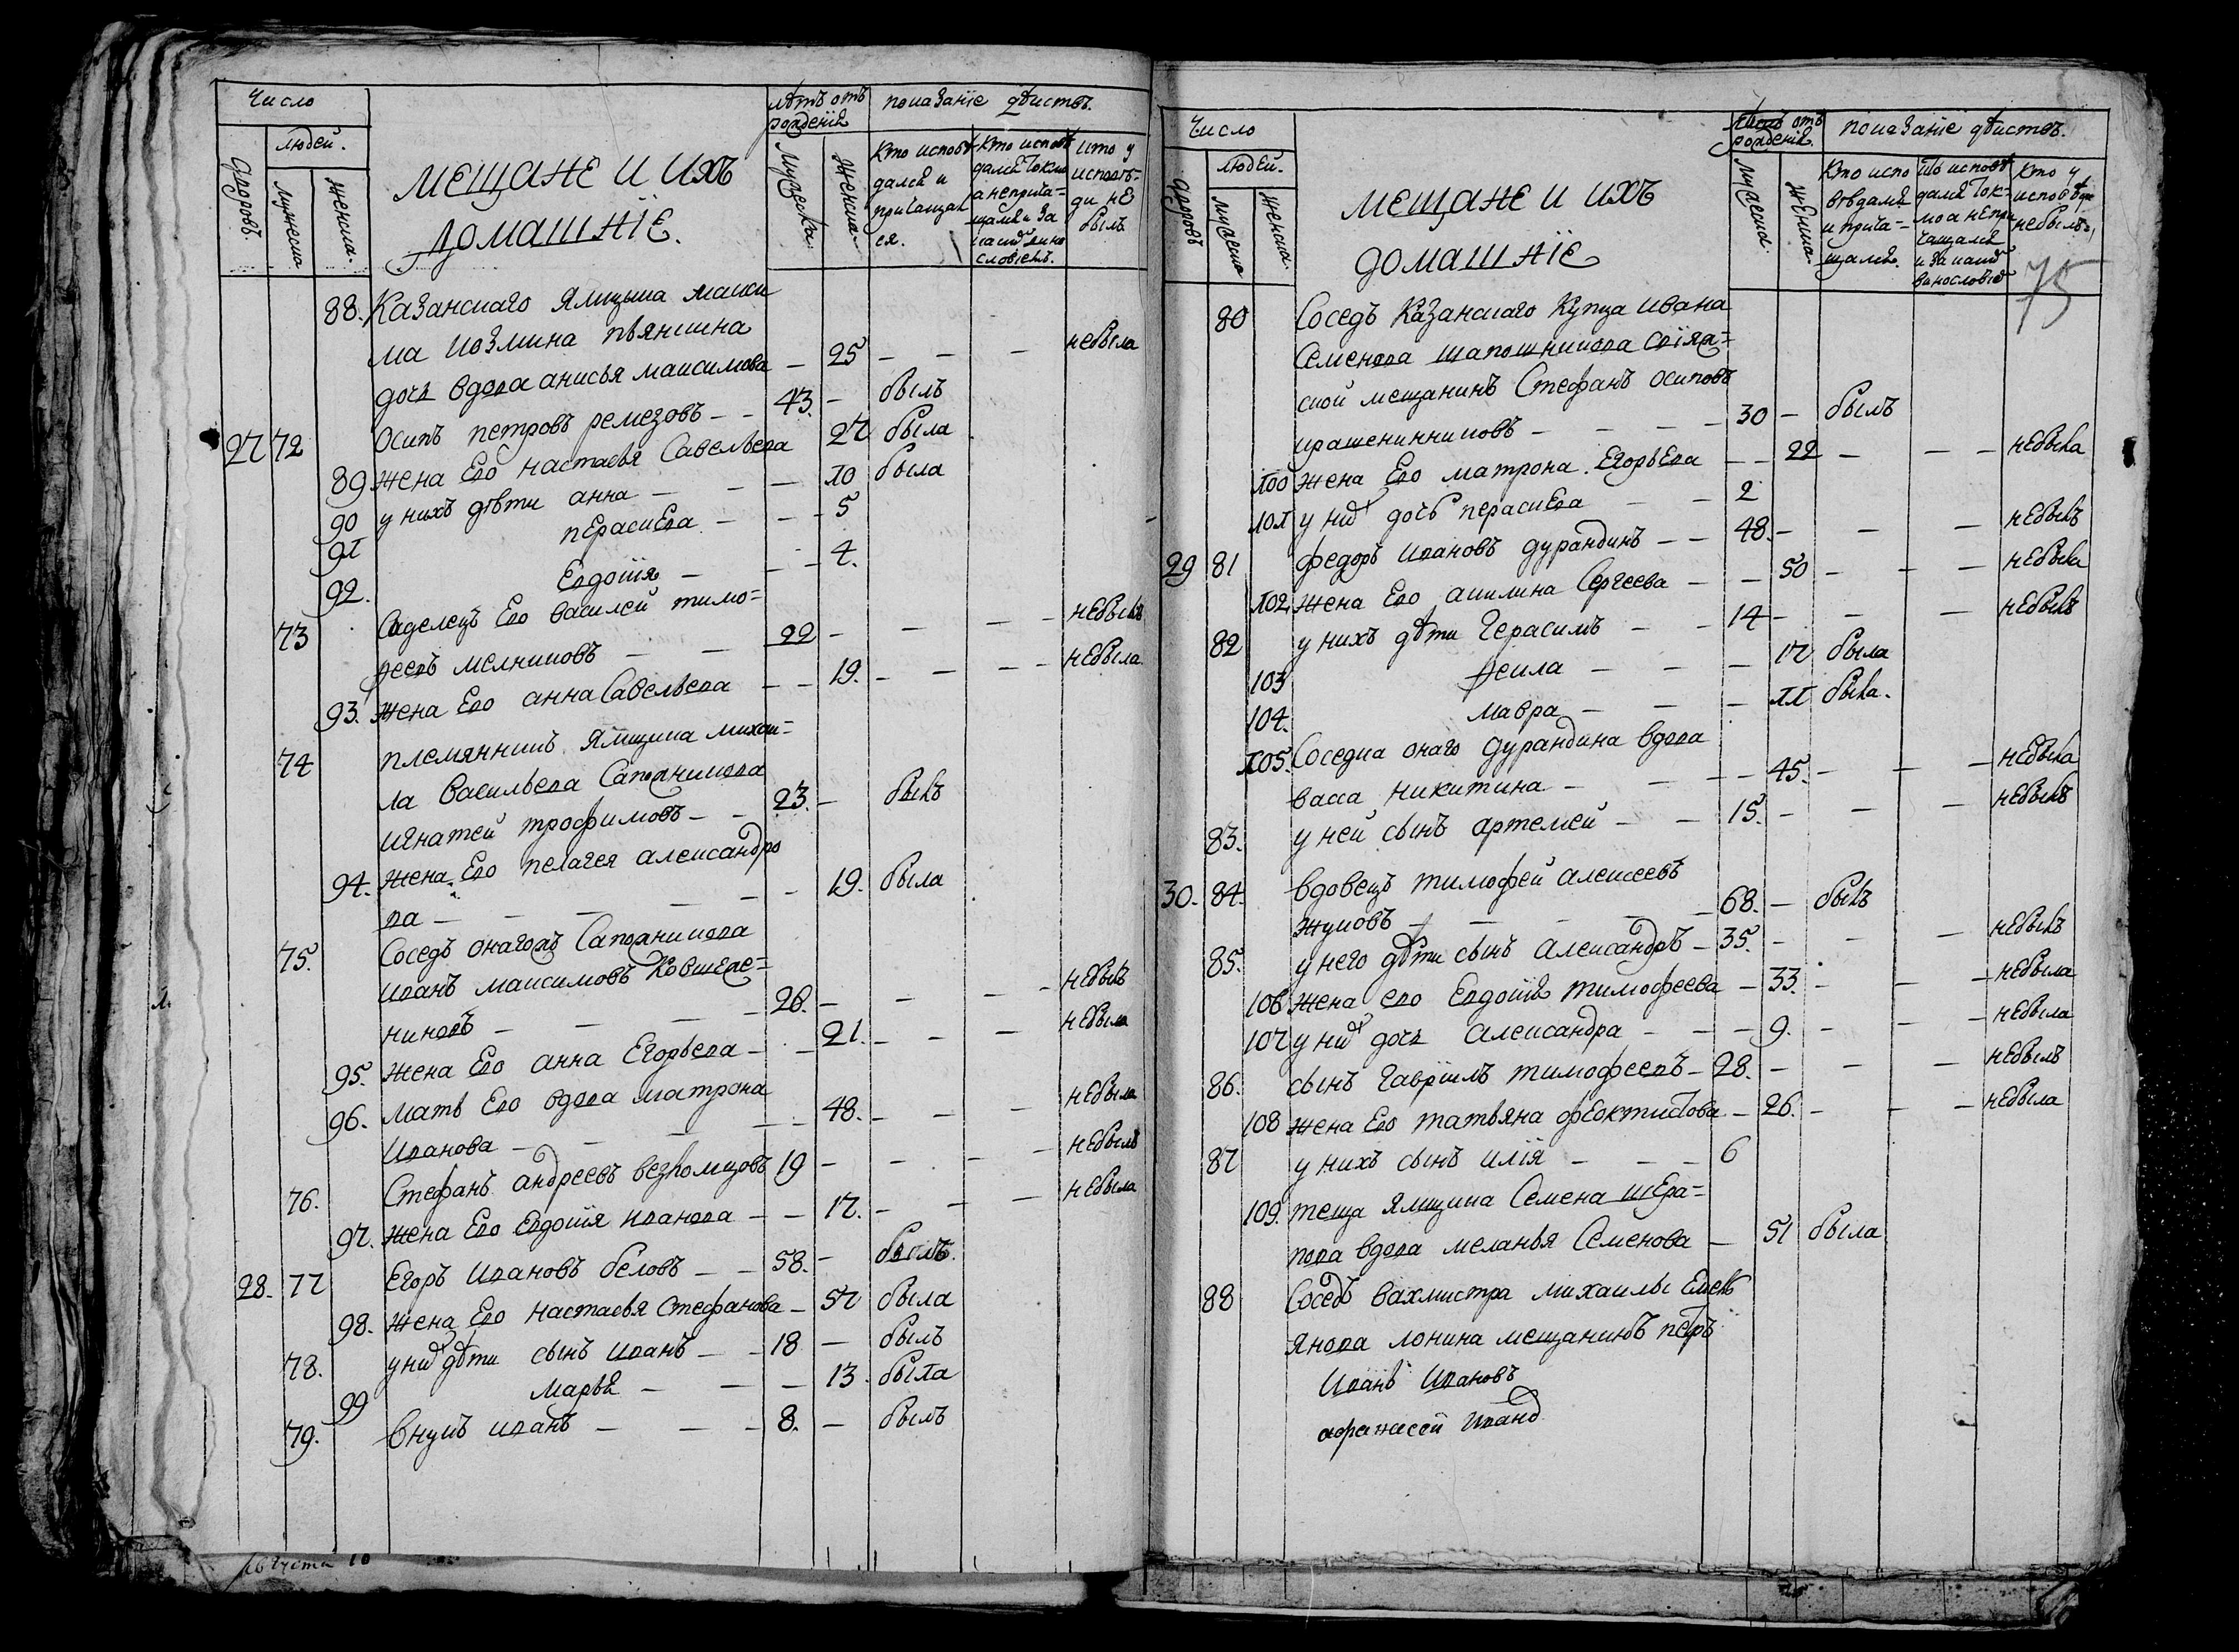 Число
людей.
дворовъ.
мужеска
женска.
мещане и ихъ
домашнїе.
лѣтъ отъ
рожденїя
мужеска.
женска.
показанїе дѣиствъ.
кто исповѣ
дался и
причащал
ся.
кто исповѣ
дался токмо
а неприча=
щался и за
какимъ вино
словїемъ.
кто у
исповѣ=
ди не
былъ
88. Казанскаго Ямщика макси
ма козмина пьянкина
дочь вдова анисья максимова — 25 — — — небыла
27 72 Осипъ петровъ ремезовъ — — 43. — былъ
89 жена Ево настасья Савельева 27 была
90 у нихъ дѣти анна — — — 10 была
91 параскева — — — 5
92. Евдокия — — — 4.
73 Саделецъ Ево василей тимо=
феевъ мелниковъ — — — 22 — — — — небылъ
93. жена Ево анна Савельева — — 19. — — — — небыла
74 племянникъ ямщика михаи=
ла васильева Сапожникова
игнатей трофимовъ — — 23. — былъ
94. жена Ево пелагея александро
ва — — — — — — 19. была
75. Соседъ онагожъ Сапожникова
иванъ максимовъ Ковшеве=
никовъ — — — — 28. — — — — небылъ
95. жена Ево анна Егорьева — — 21. — — — небыла
96. мать Ево вдова матрона
иванова — — — — — 48. — — — небыла
76. Стефанъ андреевъ везломцовъ 19 — — — — небылъ
97. жена Ево Евдокия иванова — — 17. — — — небыла
28. 77 Егоръ ивановъ беловъ — — 58. — былъ.
98. жена Ево настасья стефанова — 57 была
78. у нихъ дѣти сынъ иванъ — — 18 — былъ
99 марья — — — 13. была
79. внукъ иванъ — — — 8. — былъ
августа 10
Число
людей.
дворовъ
мужеска
женска.
мещане и ихъ
домашнїе
лѣтъ отъ
рожденїя.
мужеска.
женска.
показанїе дѣиствъ.
кто испо
вѣдался
и прича=
щался.
кто исповѣ
дался ток=
мо а непри
чащался
и за какимъ
винословїемъ
кто у
исповѣди
небылъ.
75
80 Соседъ Казанскаго Купца ивана
Семенова шапошникова свїяж=
ской мещанинъ Стефанъ осиповъ
крашенинниковъ — — — — 30 — былъ
100 жена Ево матрона Егорьева — — 22 — — — небыла
101 у нихъ дочь параскева — — 2
29 81 федоръ ивановъ дурандинъ — — 48. — — — небылъ
102. жена Ево акилина Сергеева — — 50 — — — небыла
82 у нихъ дѣти герасимъ — — 14 — — — небылъ
103 фекла — — — 17 была
104. мавра — — — 11 была.
105. Соседка онаго дурандина вдова
васса никитина — — — — 45. — — — небыла
83. у ней сынъ артемей — — 15. — — — небылъ
30. 84. вдовецъ тимофей алексеевъ
жуковъ — — — — — 68. — былъ
85. у него дѣти сынъ александръ — 35. — — — небылъ
106 жена ево Евдокия тимофеева — 33. — — — небыла
107 у нихъ дочь александра — — — 9. — — — небыла
86. сынъ гаврїилъ тимофеевъ — 28. — — — небылъ
108 жена Ево татьяна феоктистова — 26. — — — небыла
87 у нихъ сынъ илїя — — — 6
109. теща ямщика Семена шера=
пова вдова меланья Семенова — 51 была
88 Соседъ вахмистра михаилы Емель
янова лонина мещанинъ петръ
иванъ ивановъ
афанасей ивановъ